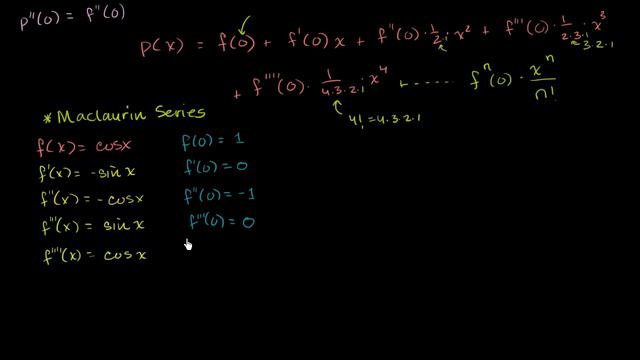 p''(0) = f''(0)
p(x) = f(0) + f'(0) x + f''(0) · 1/(2·1) x² + f'''(0) · 1/(2·3·1) x³
3·2·1
+ f''''(0) · 1/(4·3·2·1) · x⁴ + ······ fⁿ(0) · xⁿ/n!
4! = 4·3·2·1
* Maclaurin Series
f(x) = cosx f(0) = 1
f'(x) = -sinx f'(0) = 0
f''(x) = -cosx f''(0) = -1
f'''(x) = sinx f'''(0) = 0
f''''(x) = cosx